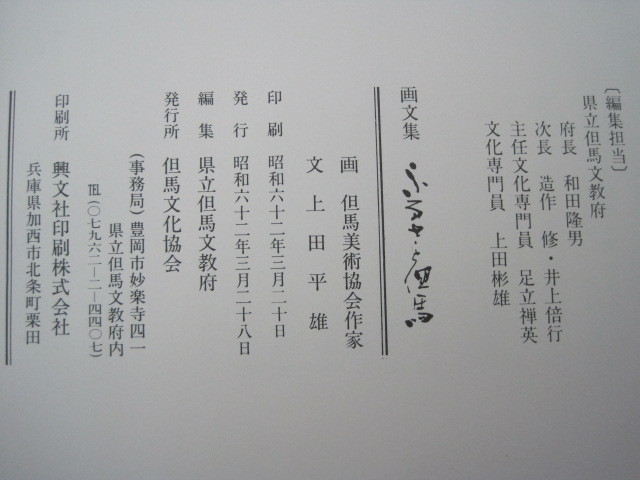 〔編集担当〕
県立但馬文教府
府長　和田隆男
次長　造作　修・井上倍行
主任文化専門員　足立禅英
文化専門員　上田彬雄
画文集　ふるさと但馬
画　但馬美術協会作家
文　上田平雄
印刷　昭和六十二年三月二十日
発行　昭和六十二年三月二十八日
編集　県立但馬文教府
発行所　但馬文化協会
（事務局）豊岡市妙楽寺四一
県立但馬文教府内
℡（〇七九六二―二―四四〇七）
印刷所　興文社印刷株式会社
兵庫県加西市北条町栗田